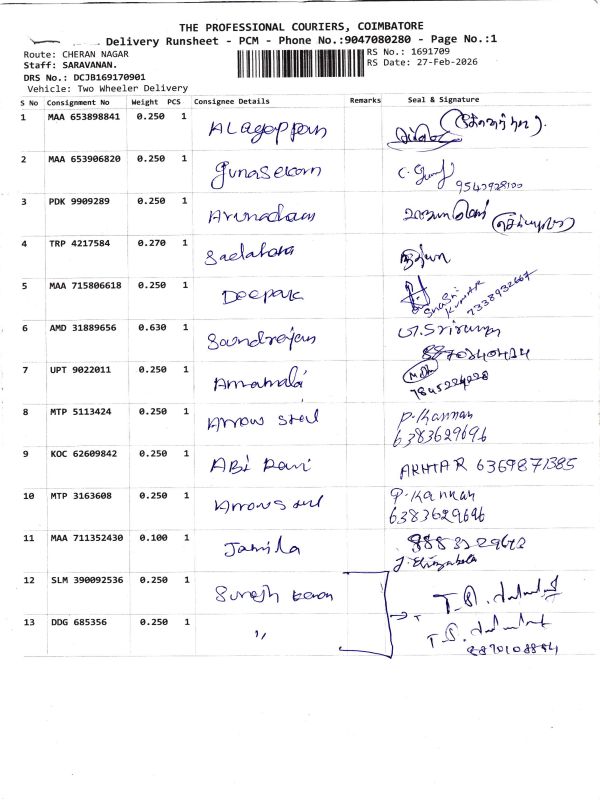 THE PROFESSIONAL COURIERS, COIMBATORE
Delivery Runsheet - PCM - Phone No.:9047080280 - Page No.:1
Route: CHERAN NAGAR
RS No.: 1691709
Staff: SARAVANAN.
RS Date: 27-Feb-2026
DRS No.: DCJB169170901
Vehicle: Two Wheeler Delivery
S No Consignment No Weight PCS Consignee Details Remarks Seal & Signature
1 MAA 653898841 0.250 1 ALagappan
2 MAA 653906820 0.250 1 Gunasekarn
C.
9542928100
3 PDK 9909289 0.250 1 Arunacham
4 TRP 4217584 0.270 1
நித்யா
5 MAA 715806618 0.250 1 Deepak
Shashi
KUMAR
7338932667
6 AMD 31889656 0.630 1 Soundrajan
7 UPT 9022011 0.250 1
7845224228
8 MTP 5113424 0.250 1 Arrow steel P. Kannan
6383629696
9 KOC 62609842 0.250 1 ABi Rani AKHTAR 6369871385
10 MTP 3163608 0.250 1 Arrow steel P. Kannan
6383629696
11 MAA 711352430 0.100 1 Jamila
J. Elizabeth
12 SLM 390092536 0.250 1 Suresh T. S.
13 DDG 685356 0.250 1 ,, T. S.